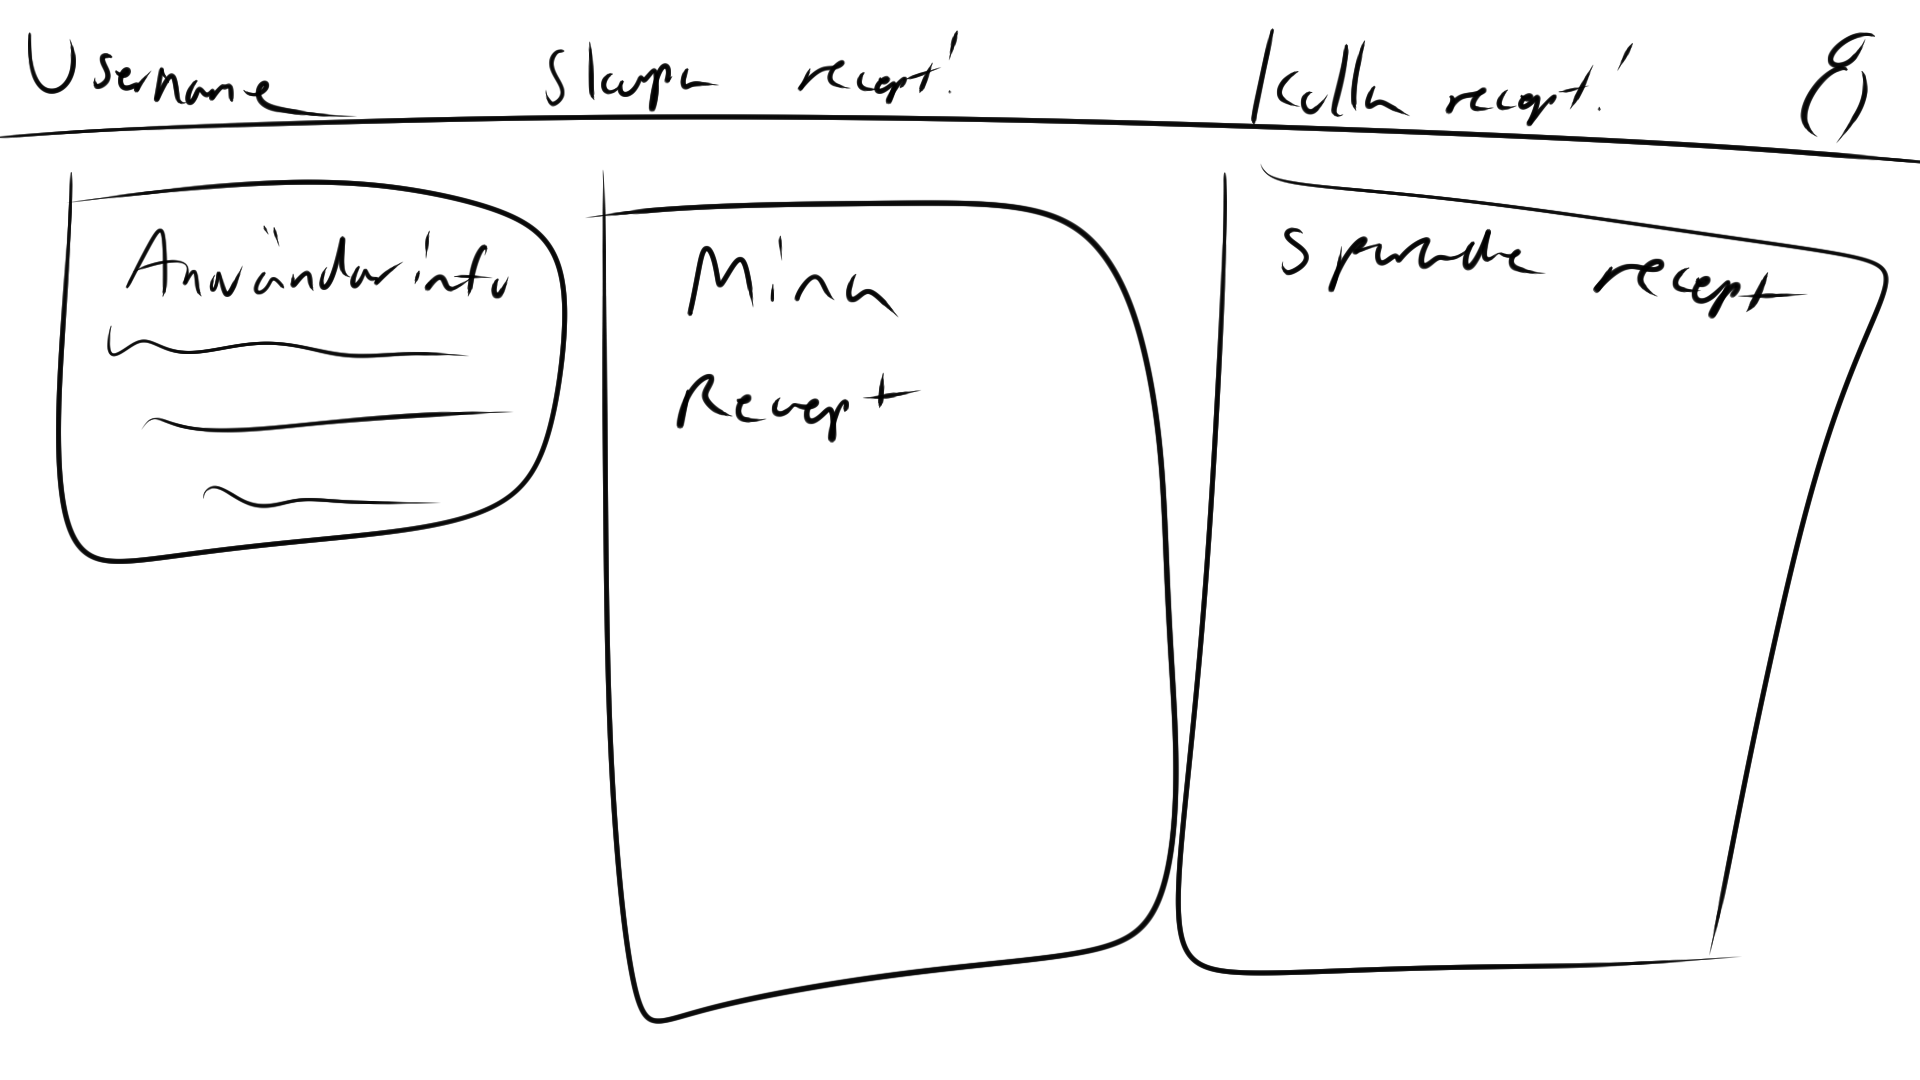 Username
Skapa recept!
Kolla recept!
Användarinfo
Mina
Recept
Sparade recept